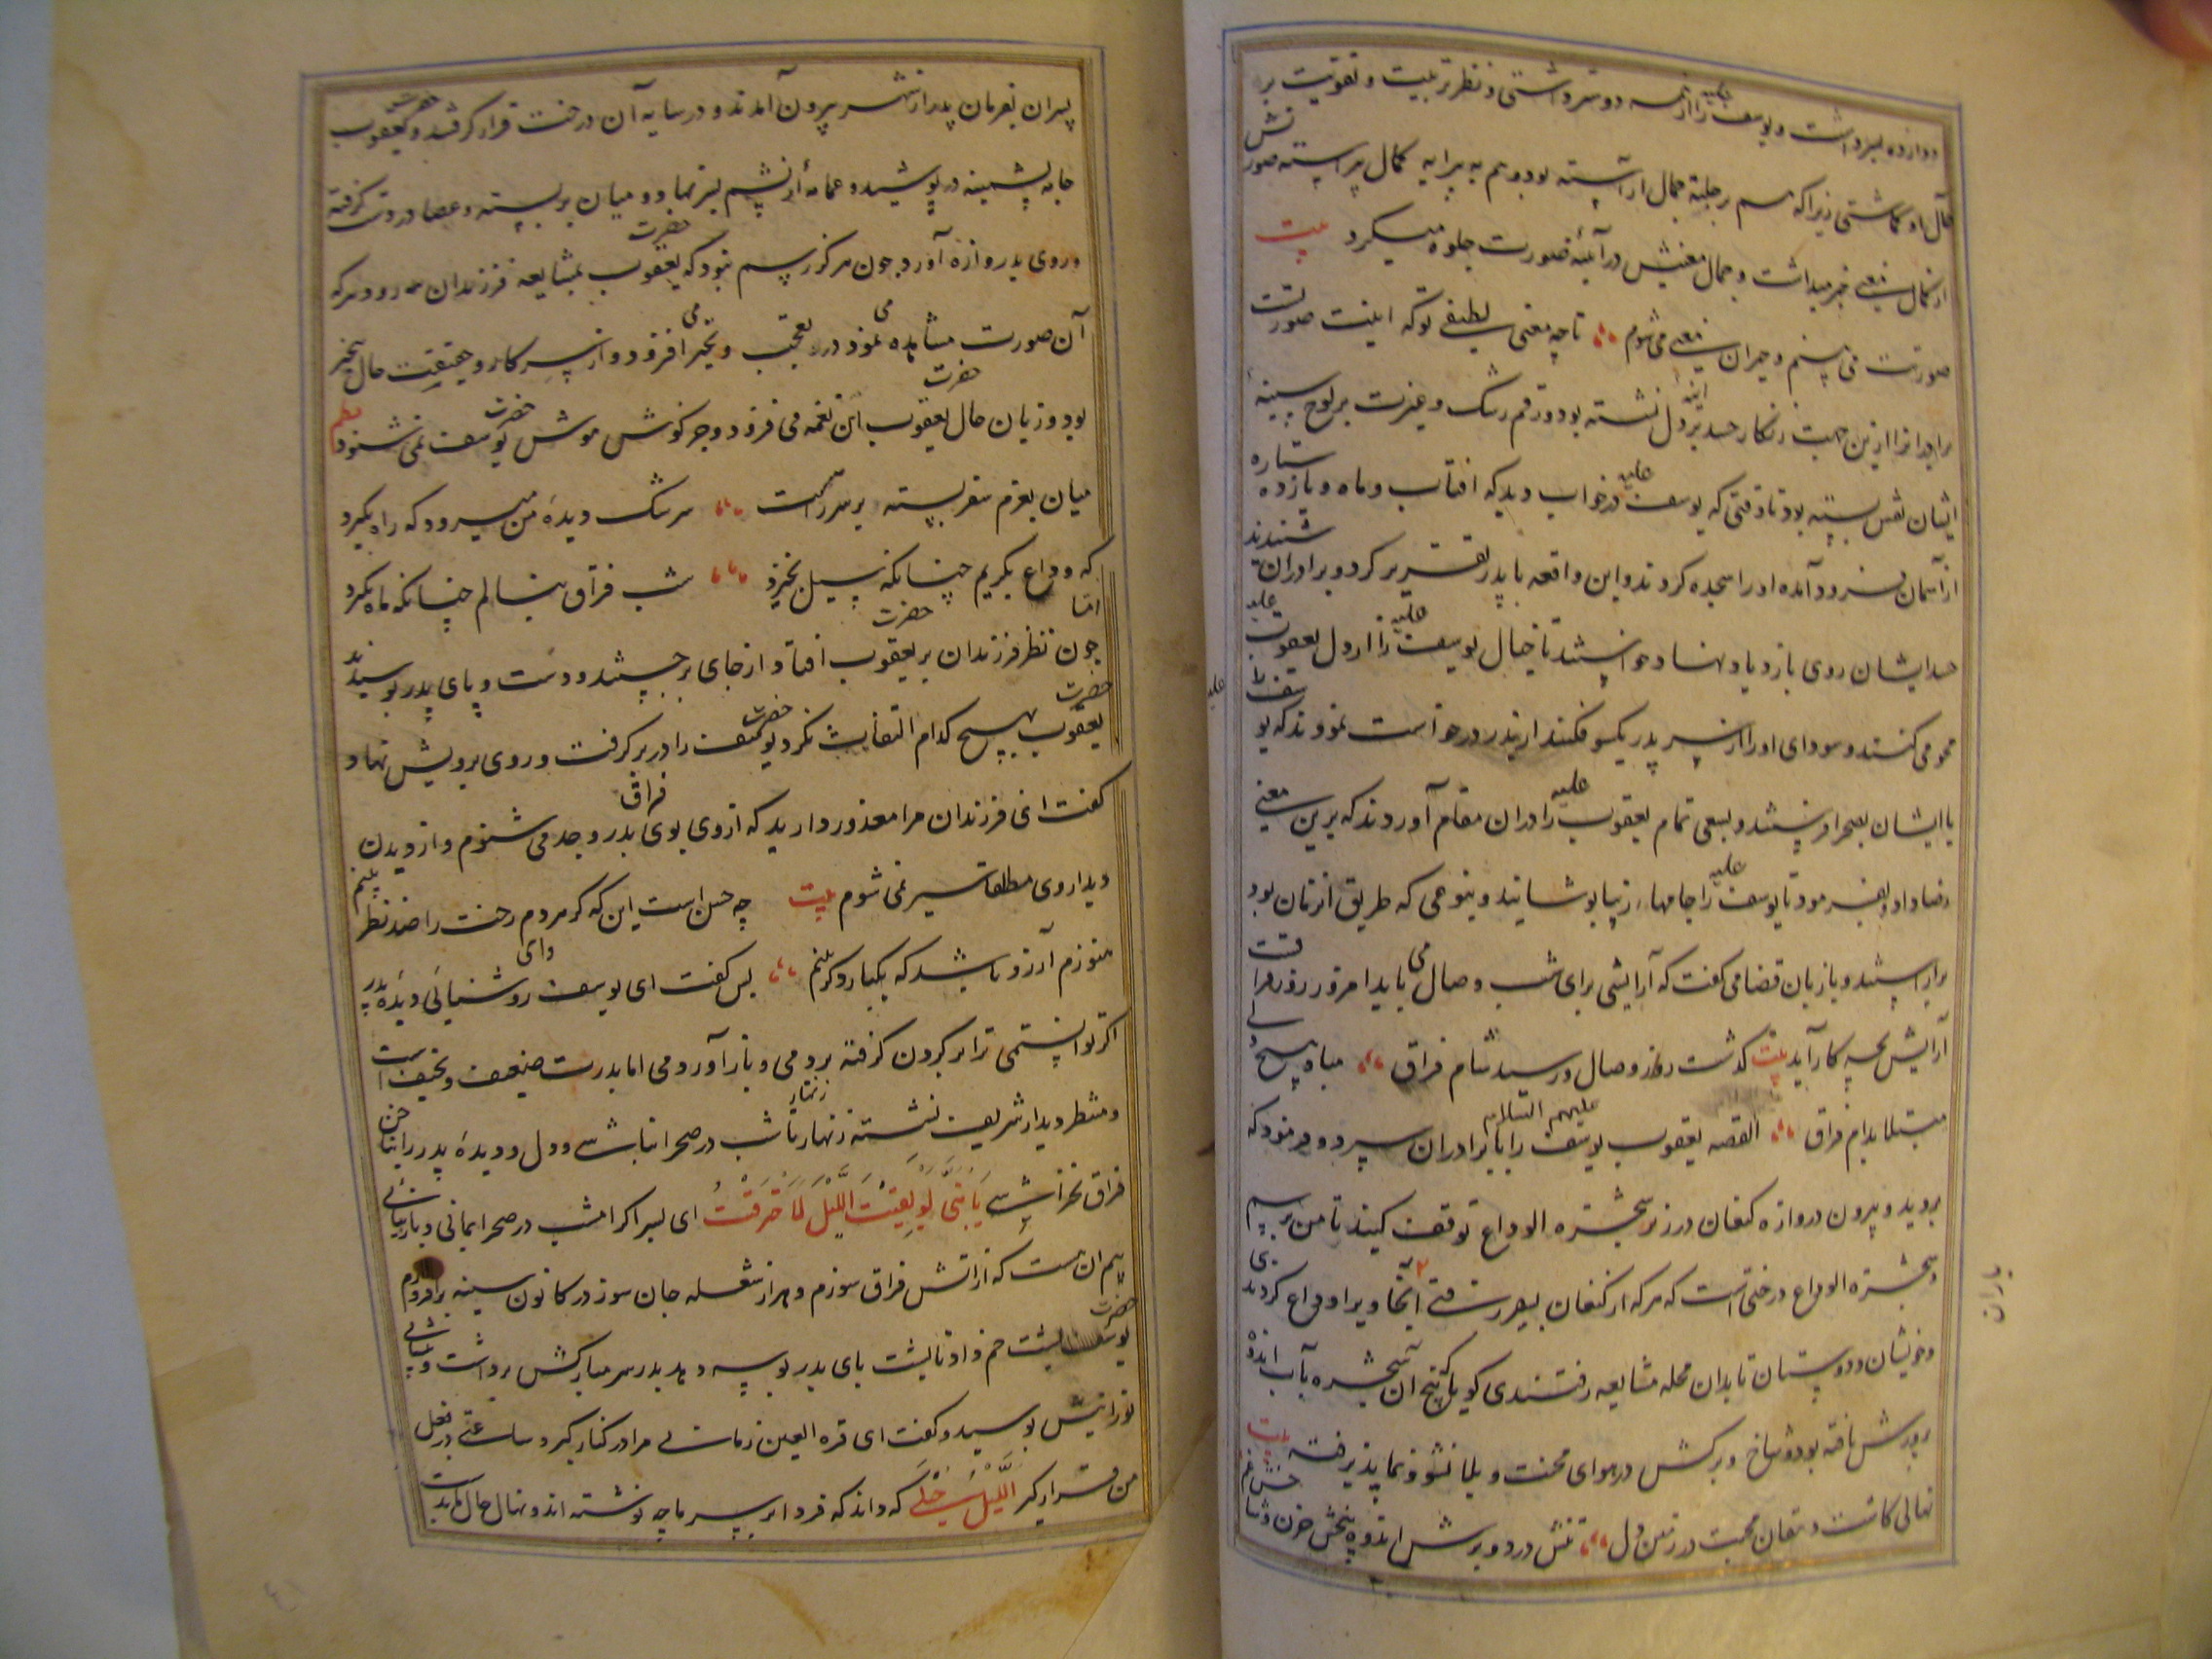 دوازده پسر داشت و یوسف علیه را از همه دوستر داشتی و نظر تربیت و تقویت بر
حال او گماشتی زیرا که هم بر حلیهٔ جمال آراسته بود و هم به پیرایه کمال پیراسته صورتش
از کمال معنی خبر میداشت و جمال معنیش در آینهٔ صورت جلوه میکرد بیت
صورتت می بینم و حیران معنی می شوم تا چه معنی لطیفی تو که اینت صورتست
برادرانرا ازین جهت زنگار حسد بر آینهٔ دل نشسته بود و رقم رشک و غیرت بر لوح سینهٔ
ایشان نقش بسته بود تا وقتی که یوسف علیه در خواب دید که افتاب و ماه و یازده ستاره
از آسمان فرود آمده او را سجده کردند و این واقعه با پدر تقریر کرد و برادران شنیدند
حسد ایشان روی بازدیاد نهاد و خواستند تا خیال یوسف علیه را از دل یعقوب علیه
محو می کنند و سودای او را از سر پدر یکسو فکنند از پدر درخواست نمودند که یوسف را
با ایشان بصحرا فرستد و بسعی تمام یعقوب علیه را در ان مقام آوردند که برین معنی
رضا داد و بفرمود تا یوسف علیه را جامهاء زیبا پوشانیدند و بنوعی که طریق انزمان بود
بیاراستند و با زبان قضا می گفت که آرایشی برای شب وصال می باید امروز روز فراقست
آرایش بچه کار آید بیت گذشت روز وصال و رسید شام فراق مباد هیچ دلی
مبتلا بدام فراق القصه یعقوب یوسف علیهم السلام را با برادران سپرد و فرمود که
بروید و بیرون دروازه کنعان در زیر شجرة الوداع توقف کنید تا من برسم
و شجرة الوداع درختی است که هر که از کنعان بسفر رفتی آنجا ویرا وداع کردندی
یاران
و خویشان و دوستان تا بدان محله مشایعه رفتندی گویی که بیخ آن شجره بآب اندوه
پرورش یافته بود و شاخ و برگش در هوای محنت و بلا نشو و نما پذیرفته بیت
نهالی کاشت دهقان محبت در زمین دل تنش درد و برش اندوه بیخش حزن و شاخش غم
پسران بفرمان پدر از شهر بیرون آمدند و در سایه آن درخت قرار گرفتند و حضرت یعقوب
جامه پشمینه در پوشید و عمامهٔ از پشم بسر نهاد و میان بر بسته و عصا در دست گرفته
و روی بدروازه آورد چون هرگز رسم نبود که حضرت یعقوب بمشایعه فرزندان رود هر که
آن صورت مشاهده می نمود در تعجب و تحیر می افزود و از سر کار و حقیقت حال بیخبر
بود و زبان حال حضرت یعقوب این نغمه می فزود و جز گوش هوش حضرت یوسف نمی شنود نظم
میان بعزم سفر بسته بر سر راهست سرشک دیدهٔ من میرود که راه بگیرد
که وداع بگریم چنانکه سیل بخیزد شب فراق بنالم چنانکه ماه بگیرد
اما چون نظر فرزندان بر حضرت یعقوب افتاد از جای برجستند و دست و پای پدر بوسیدند
حضرت یعقوب بهیچ کدام التفات نکرد حضرت یوسف را در بر گرفت و روی برویش نهاد و
گفت ای فرزندان مرا معذور دارید که از وی بوی فراق پدر و جد می شنوم و از دیدن
دیدار وی مطلقا سیر نمی شوم بیت چه حسن است این که گر هر دم رخت را صد نظر بینم
هنوزم آرزو باشد که یکبار دگر بینم پس گفت ای یوسف وای روشنیائی دیدهٔ پدر
اگر توانستمی ترا بر گردن گرفته بردمی و باز آوردمی اما پدرت ضعیف و نحیف است
و منتظر دیدار شریفت نشسته زنهار زنهار تا شب در صحرا نباشی و دل و دیدهٔ پدر را بناخن
فراق نخراشی یَا بُنَیَّ لَوْ بَقِیْتَ اللَّیْلَ لَاحْتَرَقْتُ ای پسر اگر امشب در صحرا بمانی و باز نیائی
بیم ان هست که از اتش فراق سوزم و هزار شعله جان سوز در کانون سینه بر افروزم
حضرت یوسف پشت خم داد تا پشت پای پدر بوسه دهد پدر سر مبارکش برداشت و پیشانی
نورانیش بوسید و گفت ای قره العین زمانی مرا در کنار گیر و ساعتی در بغل
من قرار گیر اللَّیْلُ حُبْلَی که داند که فردا بر سر ما چه نوشته اند و نهال حال